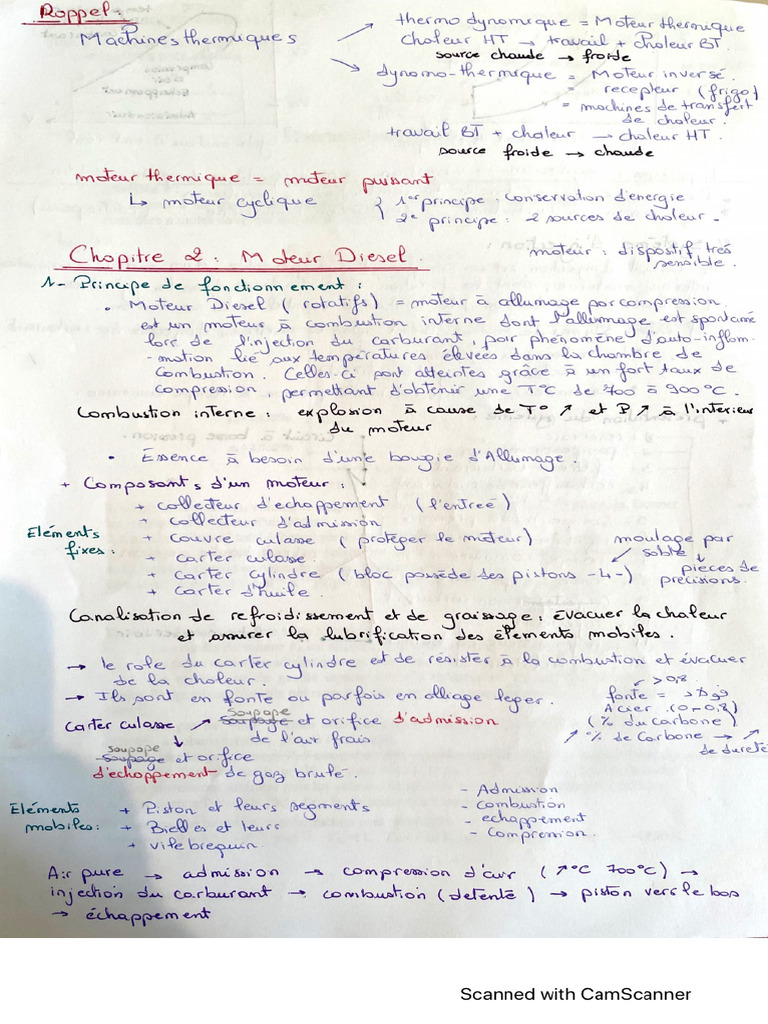 Rappel :
Machines thermiques
thermo dynamique = Moteur thermique
chaleur HT → travail + chaleur BT.
source chaude → froide
dynamo-thermique = Moteur inversé.
= recepteur (frigo)
= machines de transfert
de chaleur.
travail BT + chaleur → chaleur HT.
source froide → chaude
moteur thermique = moteur puissant
↳ moteur cyclique
1er principe : conservation d'energie
2e principe : 2 sources de chaleur.
Chapitre 2 : Moteur Diesel.
moteur : dispositif très
sensible.
1- Principe de fonctionnement :
• Moteur Diesel (rotatifs) = moteur à allumage par compression.
est un moteur à combustion interne dont l'allumage est spontané
lors de l'injection du carburant, par phénomène d'auto-inflam-
-mation lié aux températures élevées dans la chambre de
combustion. Celles-ci sont atteintes grâce à un fort taux de
compression, permettant d'obtenir une T°C de 700 à 900°C.
Combustion interne : explosion à cause de T° ↗ et P ↗ à l'interieur
du moteur
• Éssence à besoin d'une bougie d'Allumage.
+ Composants d'un moteur :
Eléments
fixes :
+ collecteur d'echappement (l'entreé)
+ collecteur d'admission
+ couvre culasse (protéger le moteur)
+ carter culasse.
+ carter cylindre (bloc possède des pistons -4-)
+ carter d'huile.
moulage par
sable
pièces de
précisions.
Canalisation de refroidissement et de graissage : évacuer la chaleur
et assurer la lubrification des élements mobiles.
→ le role du carter cylindre est de résister à la combustion et évacuer
de la chaleur.
→ Ils sont en fonte ou parfois en alliage leger.
> 0,8
fonte = فونط
Acier (0-0,8)
(% du carbone)
↗ % de Carbone → ↗
de dureté
carter culasse ↗ soupape et orifice d'admission
de l'air frais
↓
soupape et orifice
d'échappement de gaz brulé.
Eléments
mobiles :
+ Piston et leurs segments
+ Bielles et leurs
+ vilebrequin
- Admission
- combustion
- echappement
- Compression.
Air pure → admission → compression d'air (↗°C 700°C) →
injection du carburant → combustion (detente) → piston vers le bas
→ échappement
Scanned with CamScanner